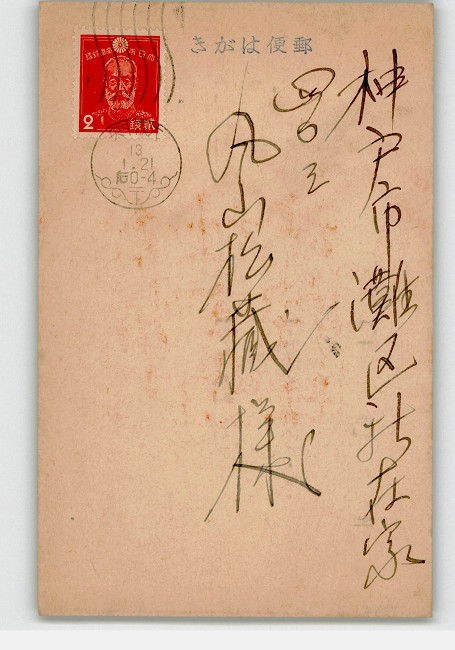 郵便はがき
大日本帝國郵便
2
貳錢
13
1.21
后0-4
神戸市灘区新在家
四〇三
丸山松藏様